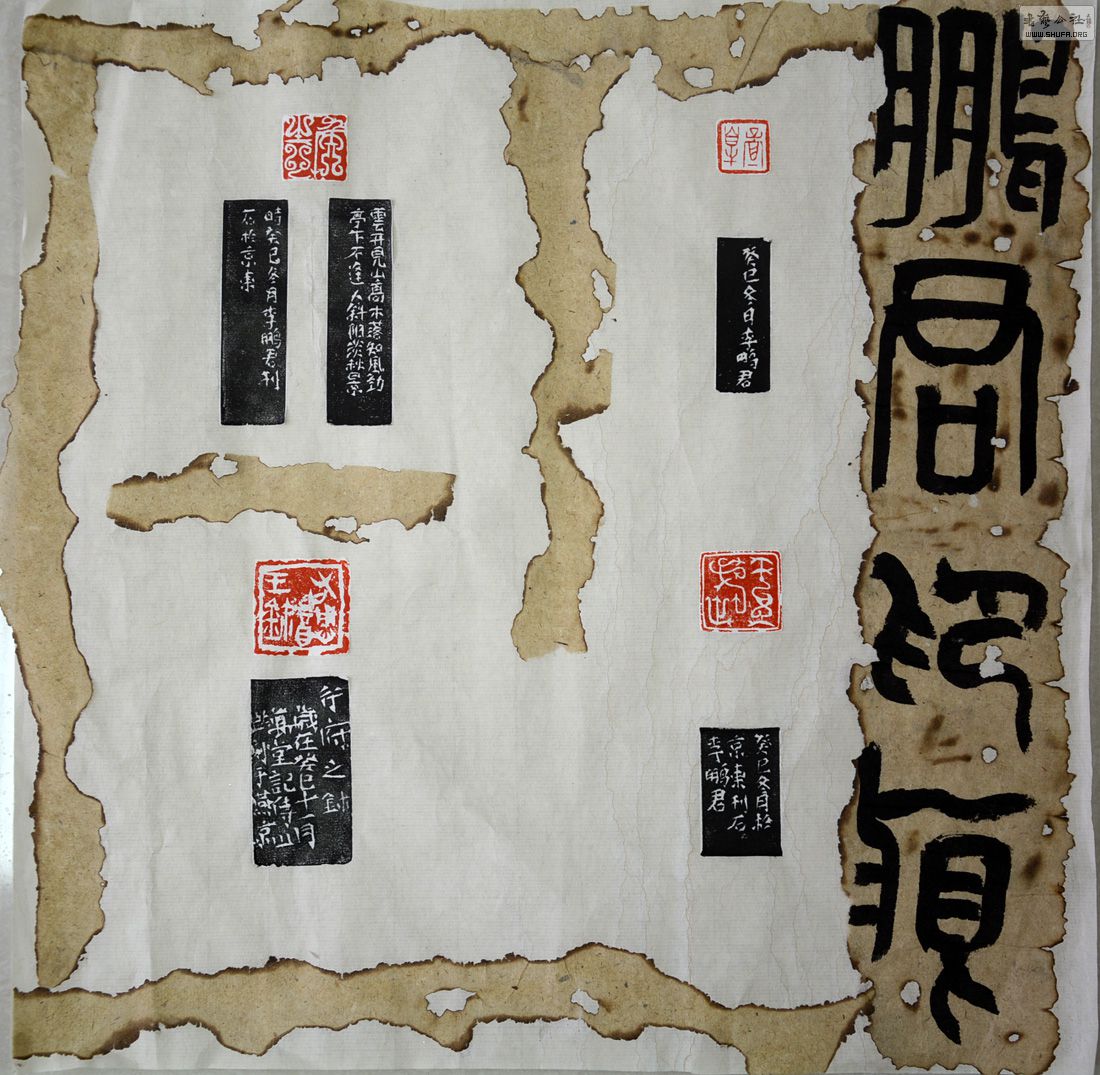 WWW.SHUFA.ORG
鵬君印痕
癸巳冬日李鵬君
雲开見山高木落知風勁
亭下不逢人斜陽淡秋景
時癸巳冬月李鵬君刊
石於京東
癸巳冬月於
京東刊石
李鵬君
行府之鉨
歲在癸巳十一月
堂記
刊于燕京